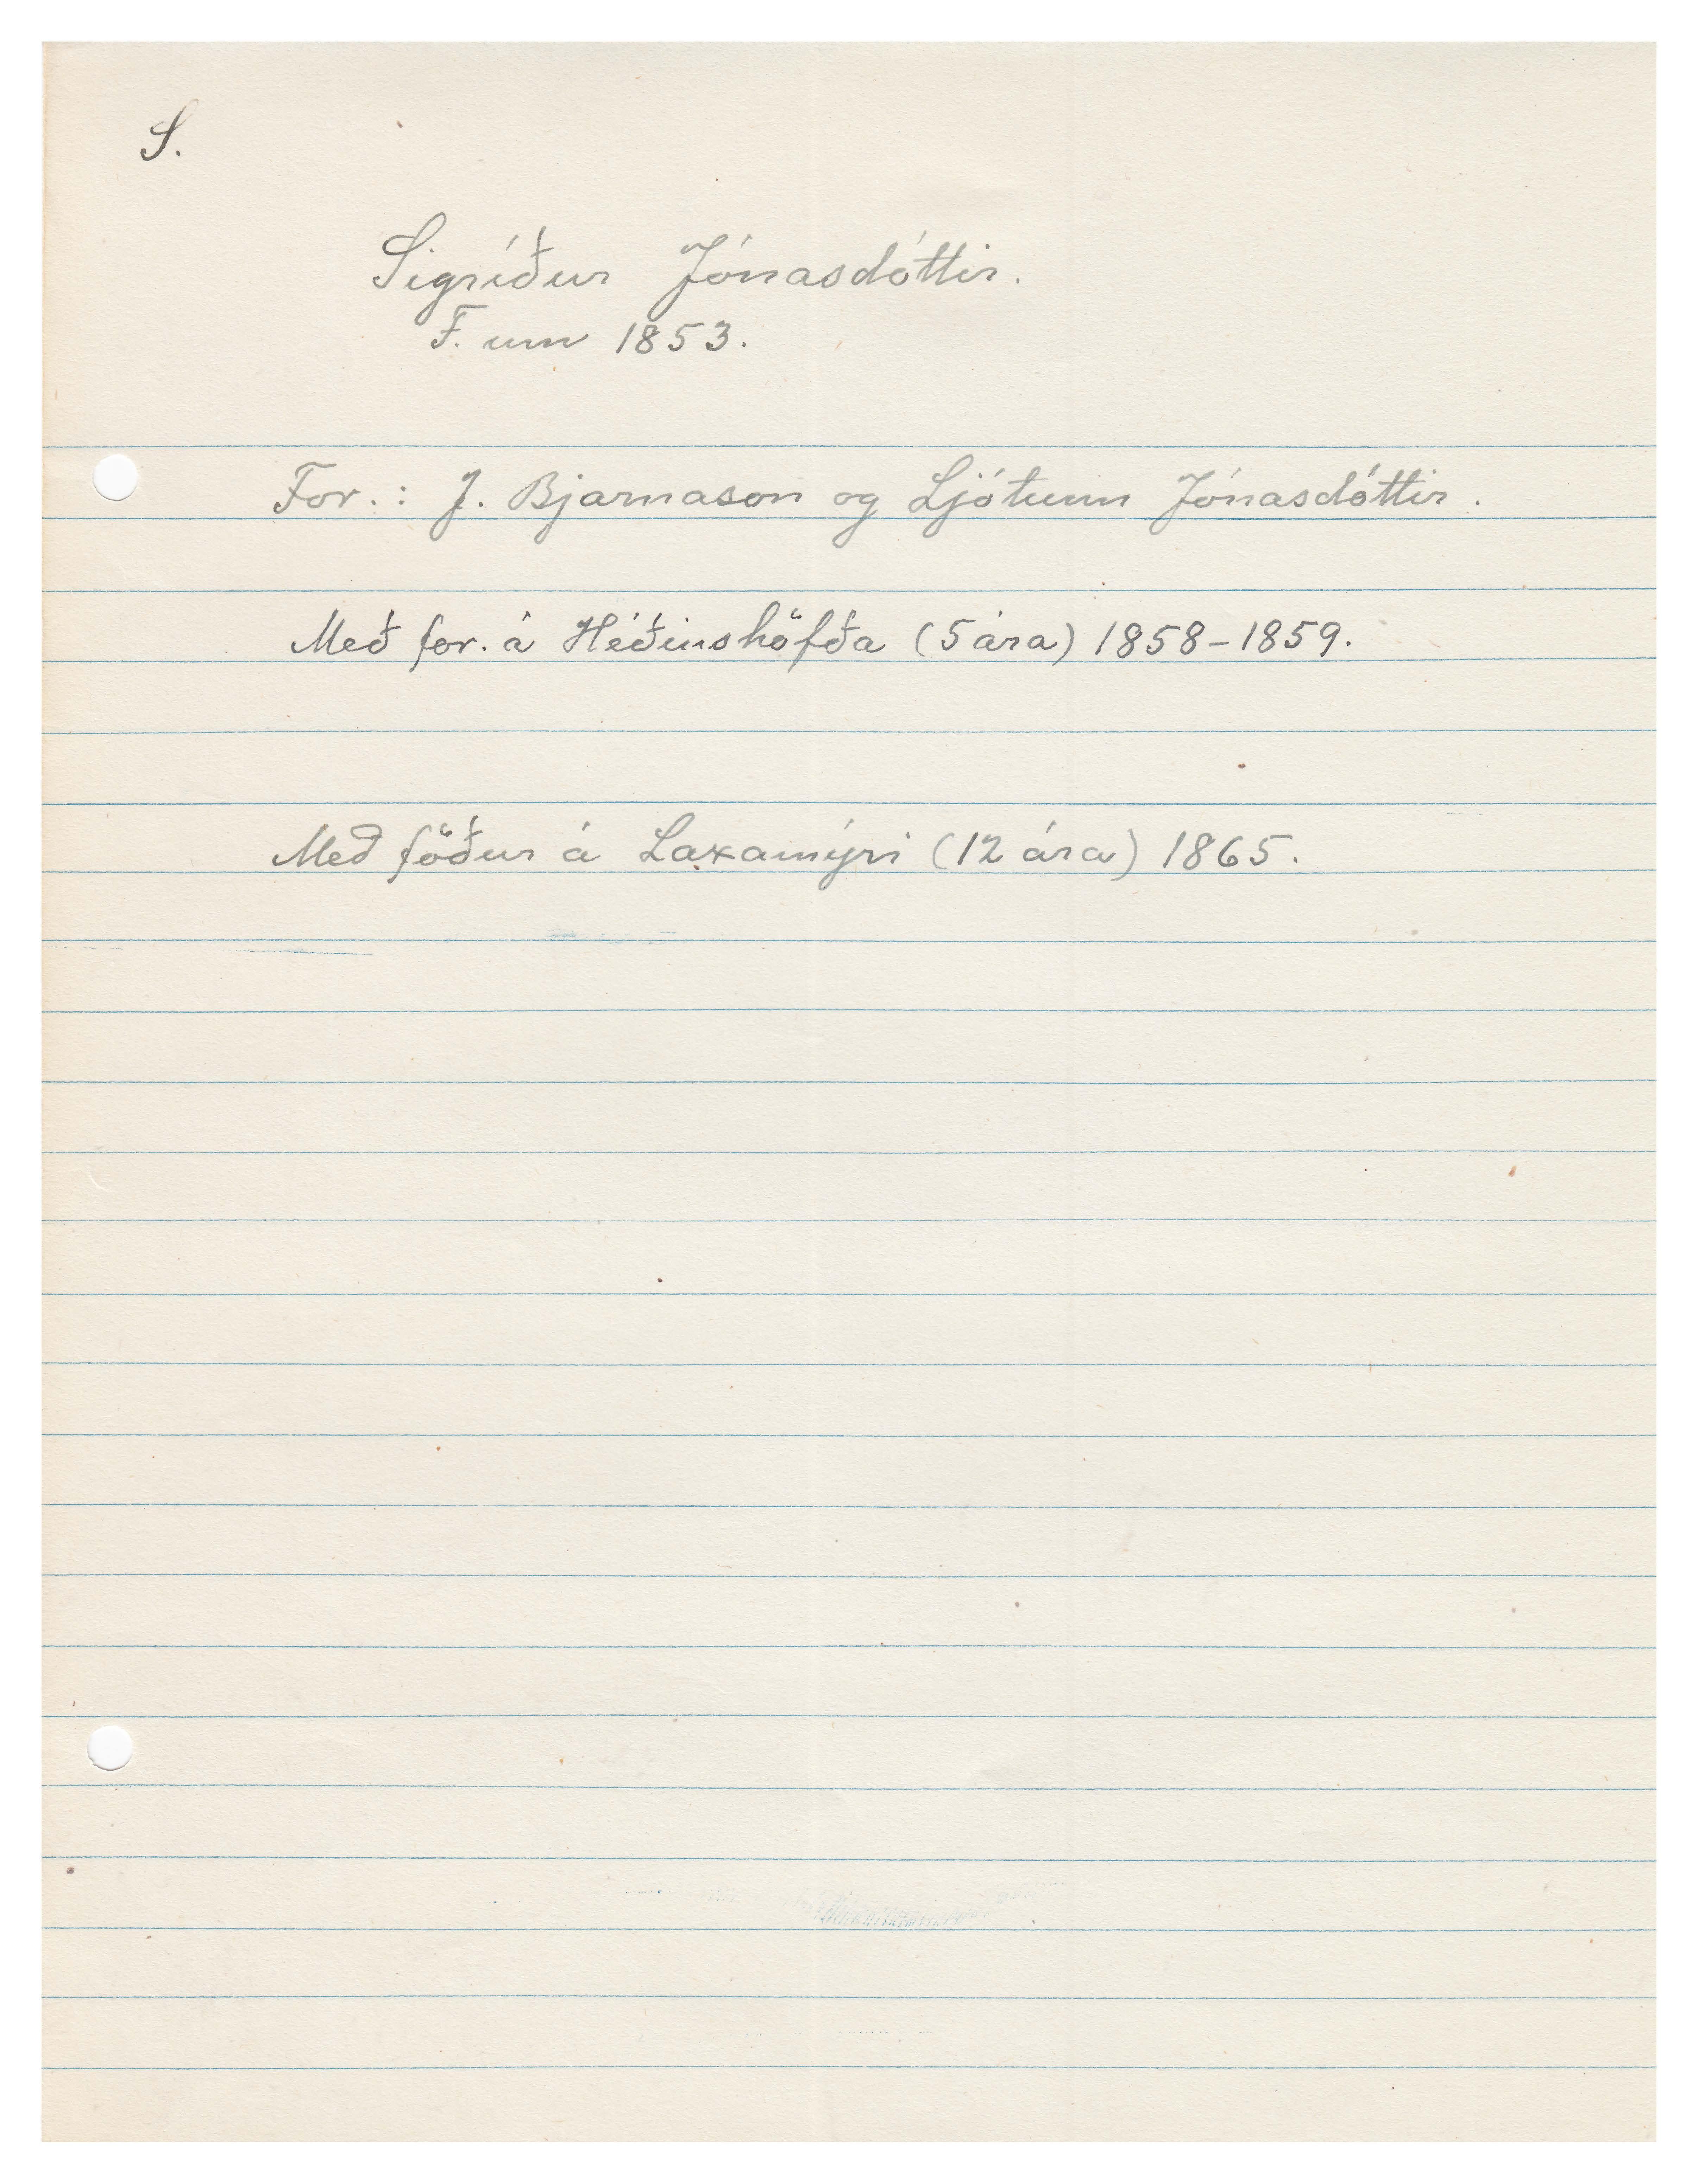 S.
Sigríður Jónasdóttir.
F. um 1853.
For.: J. Bjarnason og Ljótunn Jónasdóttir.
Með for. á Héðinshöfða (5 ára) 1858-1859.
Með föður á Laxamýri (12 ára) 1865.